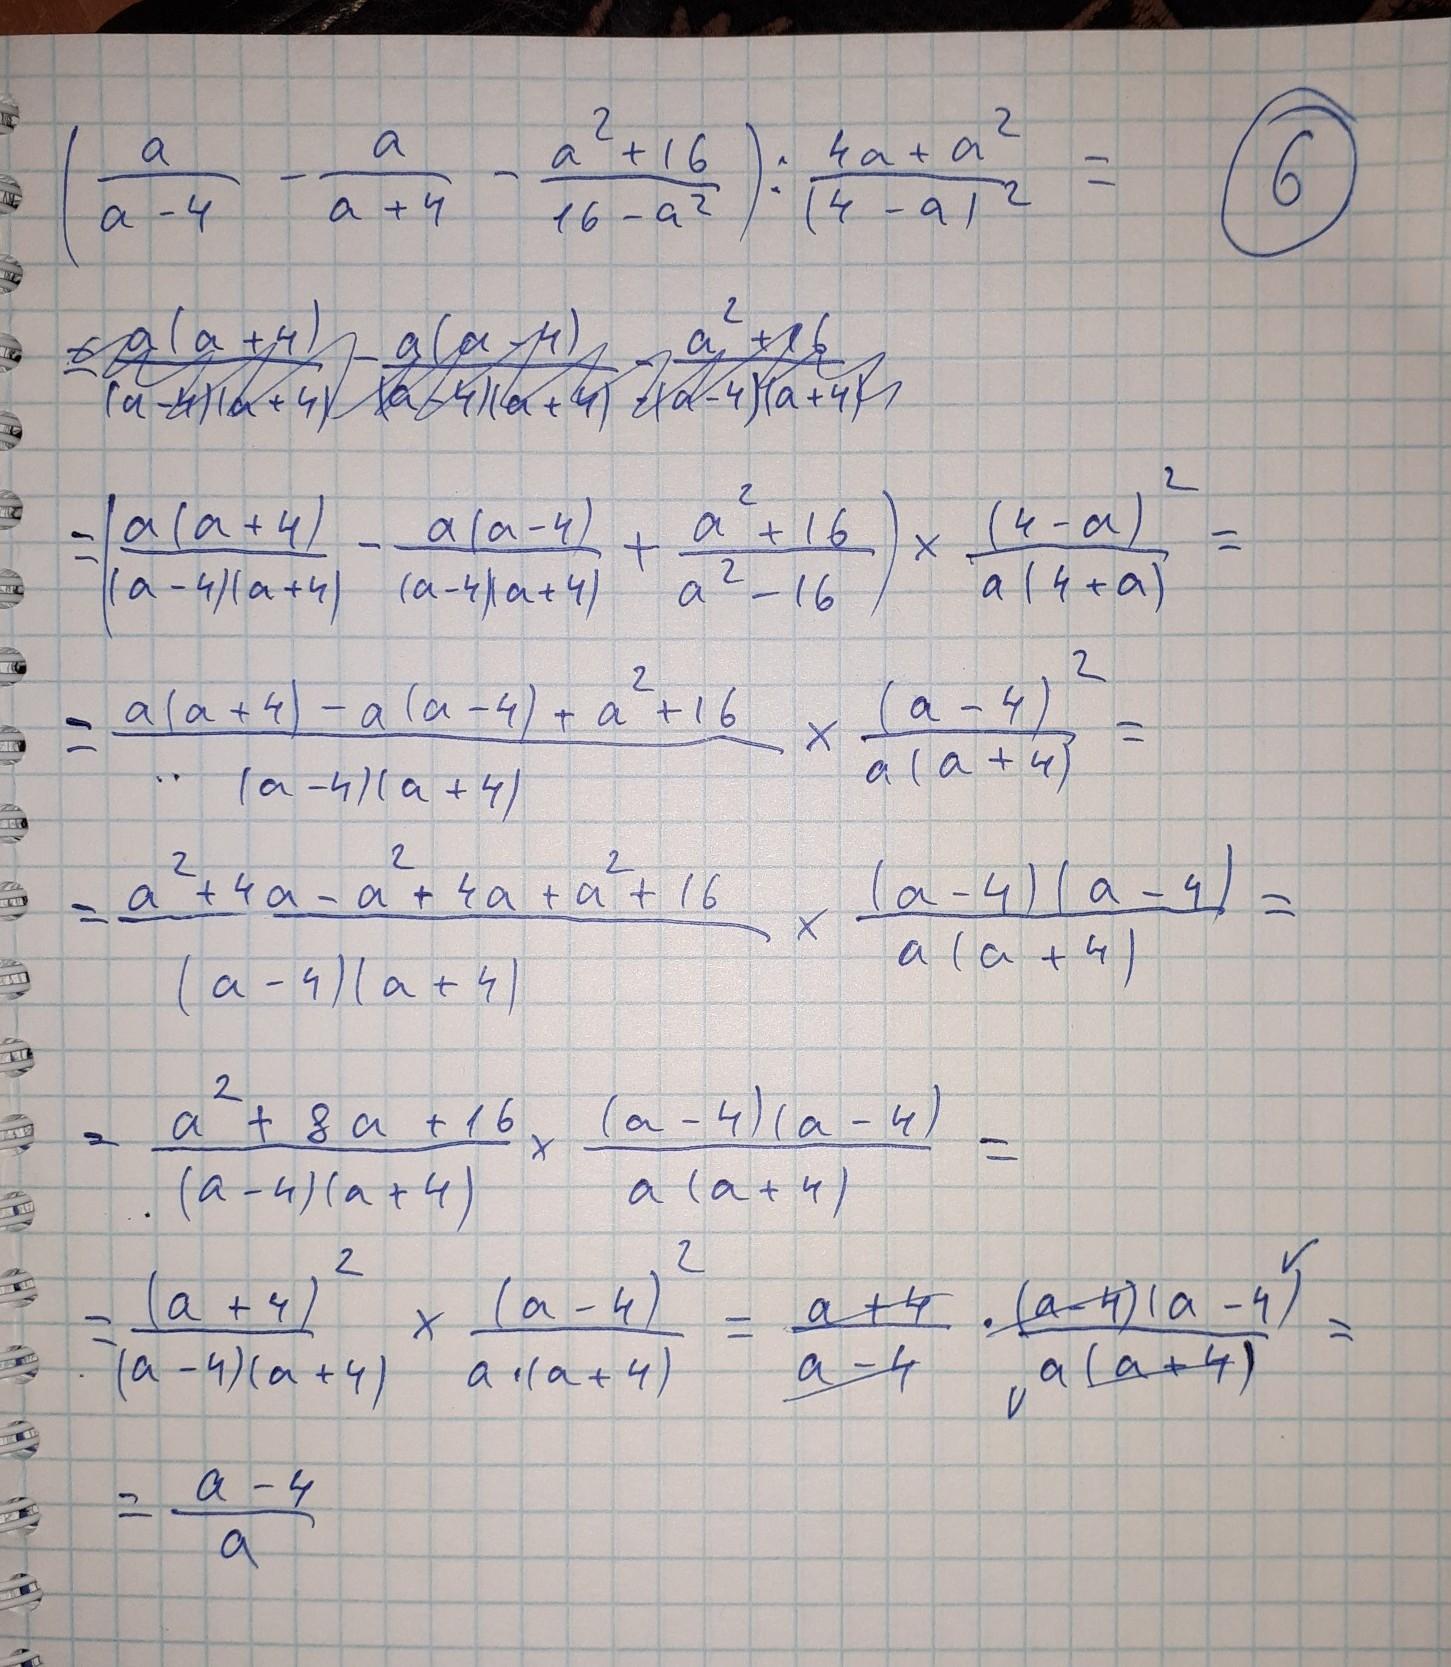 (a/(a-4) - a/(a+4) - (a²+16)/(16-a²)) : (4a+a²)/(4-a)² = 6
= a(a+4)/((a-4)(a+4)) - a(a-4)/((a-4)(a+4)) - (a²+16)/(-(a-4)(a+4))
= (a(a+4)/((a-4)(a+4)) - a(a-4)/((a-4)(a+4)) + (a²+16)/(a²-16)) × (4-a)²/(a(4+a)) =
= (a(a+4)-a(a-4)+a²+16)/((a-4)(a+4)) × (a-4)²/(a(a+4)) =
= (a²+4a-a²+4a+a²+16)/((a-4)(a+4)) × (a-4)(a-4)/(a(a+4)) =
= (a²+8a+16)/((a-4)(a+4)) × (a-4)(a-4)/(a(a+4)) =
= (a+4)²/((a-4)(a+4)) × (a-4)²/(a·(a+4)) = (a+4)/(a-4) · (a-4)(a-4)/(a(a+4)) =
= (a-4)/a